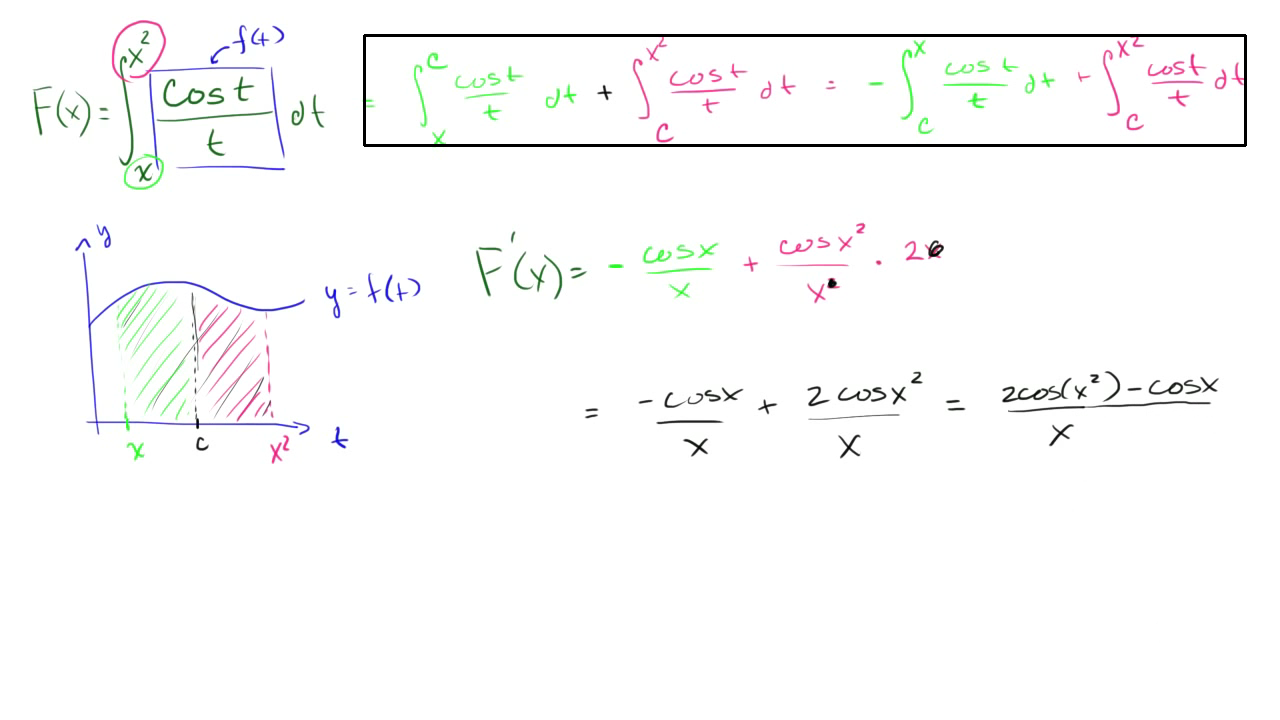 F(x) = ∫_x^{x²} cos t / t dt
f(t)
= ∫_x^c cos t / t dt + ∫_c^{x²} cos t / t dt = - ∫_c^x cos t / t dt + ∫_c^{x²} cos t / t dt
y
y = f(t)
x c x² t
F'(x) = - cos x / x + cos x² / x · 2
= - cos x / x + 2 cos x² / x = 2cos(x²) - cos x / x